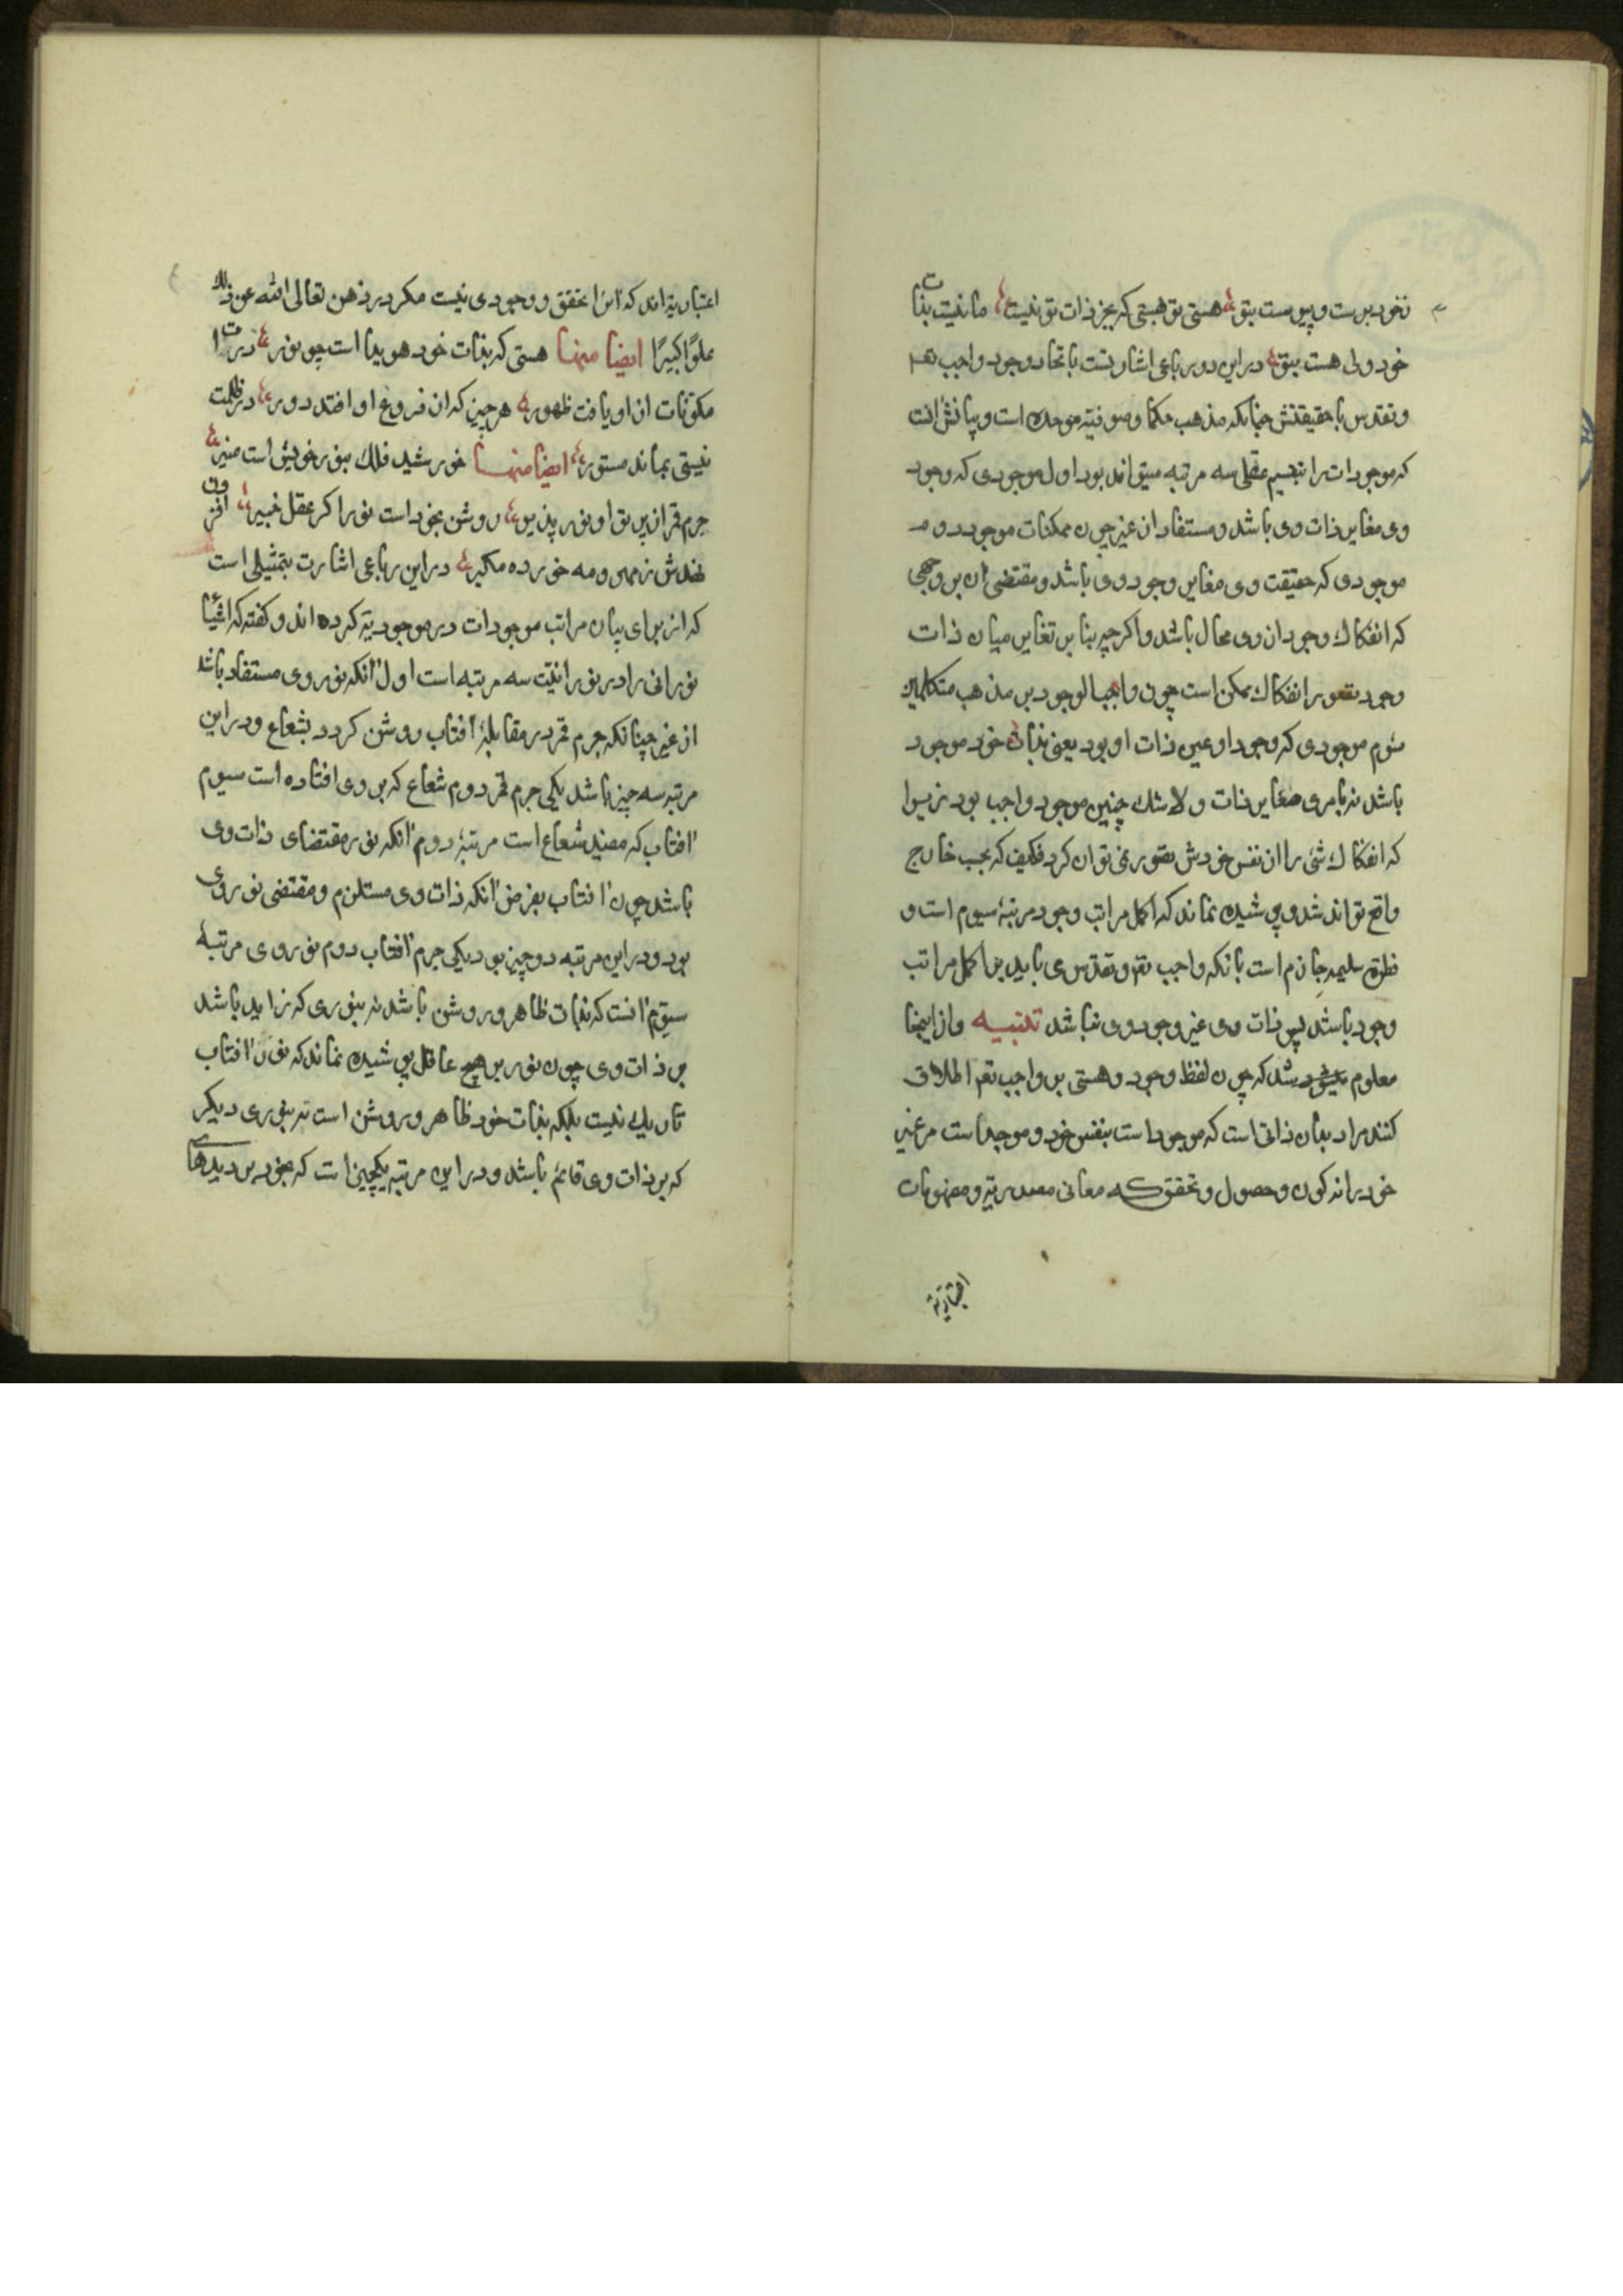 نخود برست و پیوست بتو هستی تو هستی که بجز ذات تو نیست ما نیست بذات
خود ولی هست بتو در این دو رباعی اشارتست باتحاد وجود واجب تعم
و تقدس با حقیقتش چنانکه مذهب حکما و صوفیه موحده است و بیانش انست
که موجودات را بتقسیم عقلی سه مرتبه میتواند بود اول موجودی که وجود
وی مغایر ذات وی باشد و مستفاد از غیر چون ممکنات موجود دوم
موجودی که حقیقت وی مغایر وجود وی باشد و مقتضی ان بر وجهی
که انفکاک وجود از وی محال باشد و اکرچه بنا بر تغایر میان ذات
وجود بتصور انفکاک ممکن است چون واجب الوجود بر مذهب متکلمین
سوم موجودی که وجود او عین ذات او بود یعنی بذات خود موجود
باشد نه بامری مغایر ذات و لاشک چنین موجود واجب بود زیرا
که انفکاک شیٔ را از نفس خودش تصور نمی توان کرد فکیف که بحسب خارج
واقع تواند شد و پوشیده نماند که اکمل مراتب وجود مرتبهٔ سیوم است و
فطرة سلیمه جازم است بانکه واجب تعم و تقدس می باید بر اکمل مراتب
وجود باشد پس ذات وی عین وجود وی باشد تنبیه و از اینجا
معلوم شد که چون لفظ وجود و هستی بر واجب تعم اطلاق
کنند مراد بدان ذاتی است که موجود است بنفس خود و موجد است مر غیر
خود را نه کون و حصول و تحقق که معانی مصدریه و مفهومات
اعتباریه
اعتباریه اند که انرا تحقق و وجودی نیست مکر در ذهن تعالی الله عن ذلک
علوا کبیرا ایضا منها هستی که بذات خود هویدا است چو نور ذرات
مکونات از او یافت ظهور هر چیز که از فروغ او افتد دور در ظلمت
نیستی بماند مستور ایضا منها خورشید فلک بنور خویش است منیر
جرم قمر از پرتو او نور پذیر روشن بخود است نور اکر عقل خبیر افزون
نهدش ز مهر و مه خورده مکیر در این رباعی اشارت بتمثیلی است
که از برای بیان مراتب موجودات در موجودیة کرده اند و کفته که اشیٔا
نورانی را در نورانیت سه مرتبه است اول انکه نور وی مستفاد باشد
از غیر چنانکه جرم قمر در مقابلهٔ افتاب روشن کردد بشعاع و در این
مرتبه سه چیز باشد یکی جرم قمر دوم شعاع که بر وی افتاده است سیوم
افتاب که مفید شعاع است مرتبهٔ دوم انکه نور مقتضای ذات وی
باشد چون افتاب بفرض انکه ذات وی مستلزم و مقتضی نور وی
بود و در این مرتبه دو چیز بود یکی جرم افتاب دوم نور وی مرتبهٔ
سیوم انست که بذات ظاهر و روشن باشد نه بنوری که زاید باشد
بر ذات وی چون نور بر هیچ عاقل پوشیده نماند که نور افتاب
تاریک نیست بلکه بذات خود ظاهر و روشن است نه بنوری دیکر
که بر ذات وی قائم باشد و در این مرتبه یکچیز است که بخود بر دیدهای